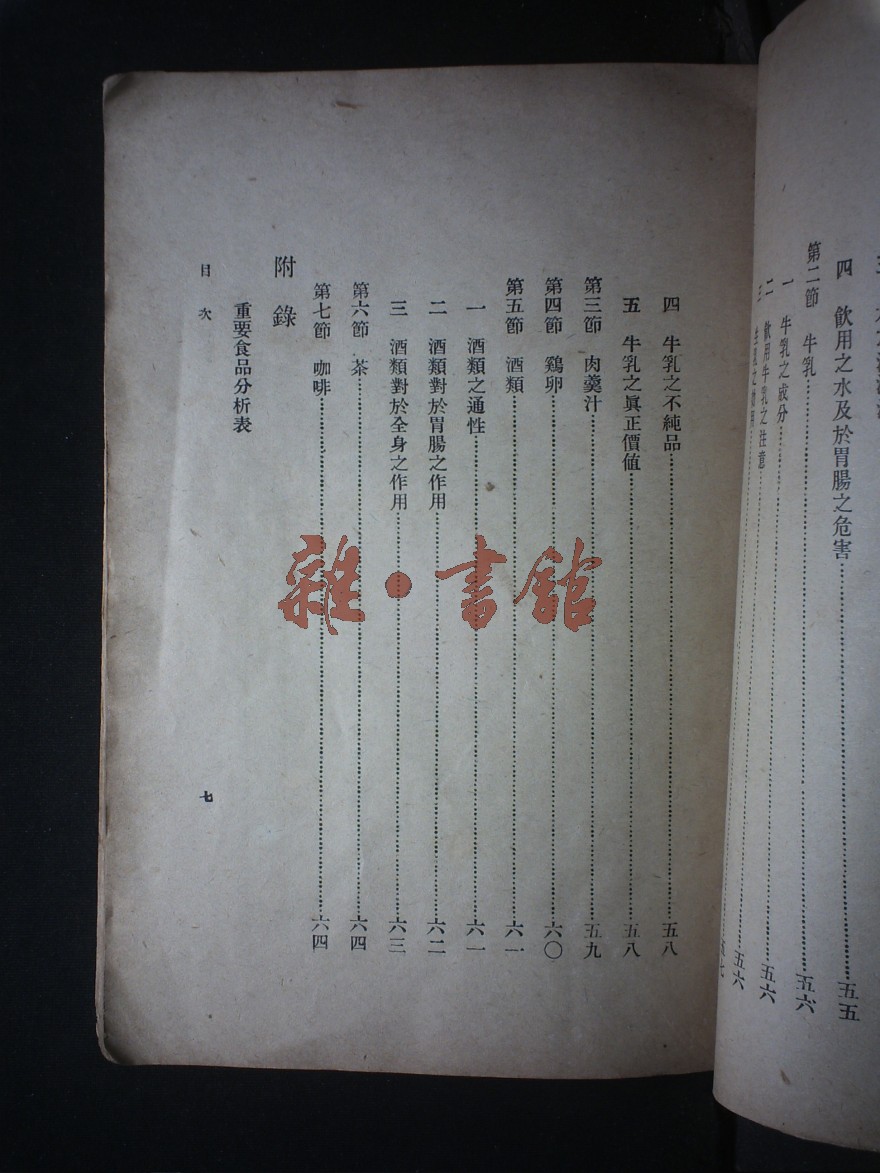 四　飲用之水及於胃腸之危害……五五
第二節　牛乳……五六
一　牛乳之成分……五六
二　飲用牛乳之注意……五六
四　牛乳之不純品……五八
五　牛乳之眞正價値……五八
第三節　肉羹汁……五九
第四節　鷄卵……六〇
第五節　酒類……六一
一　酒類之通性……六一
二　酒類對於胃腸之作用……六二
三　酒類對於全身之作用……六三
第六節　茶……六四
第七節　咖啡……六四
附錄
重要食品分析表
目次　七
雜·書館